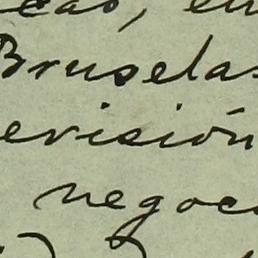 eas, en
Bruselas
evisión
negoc